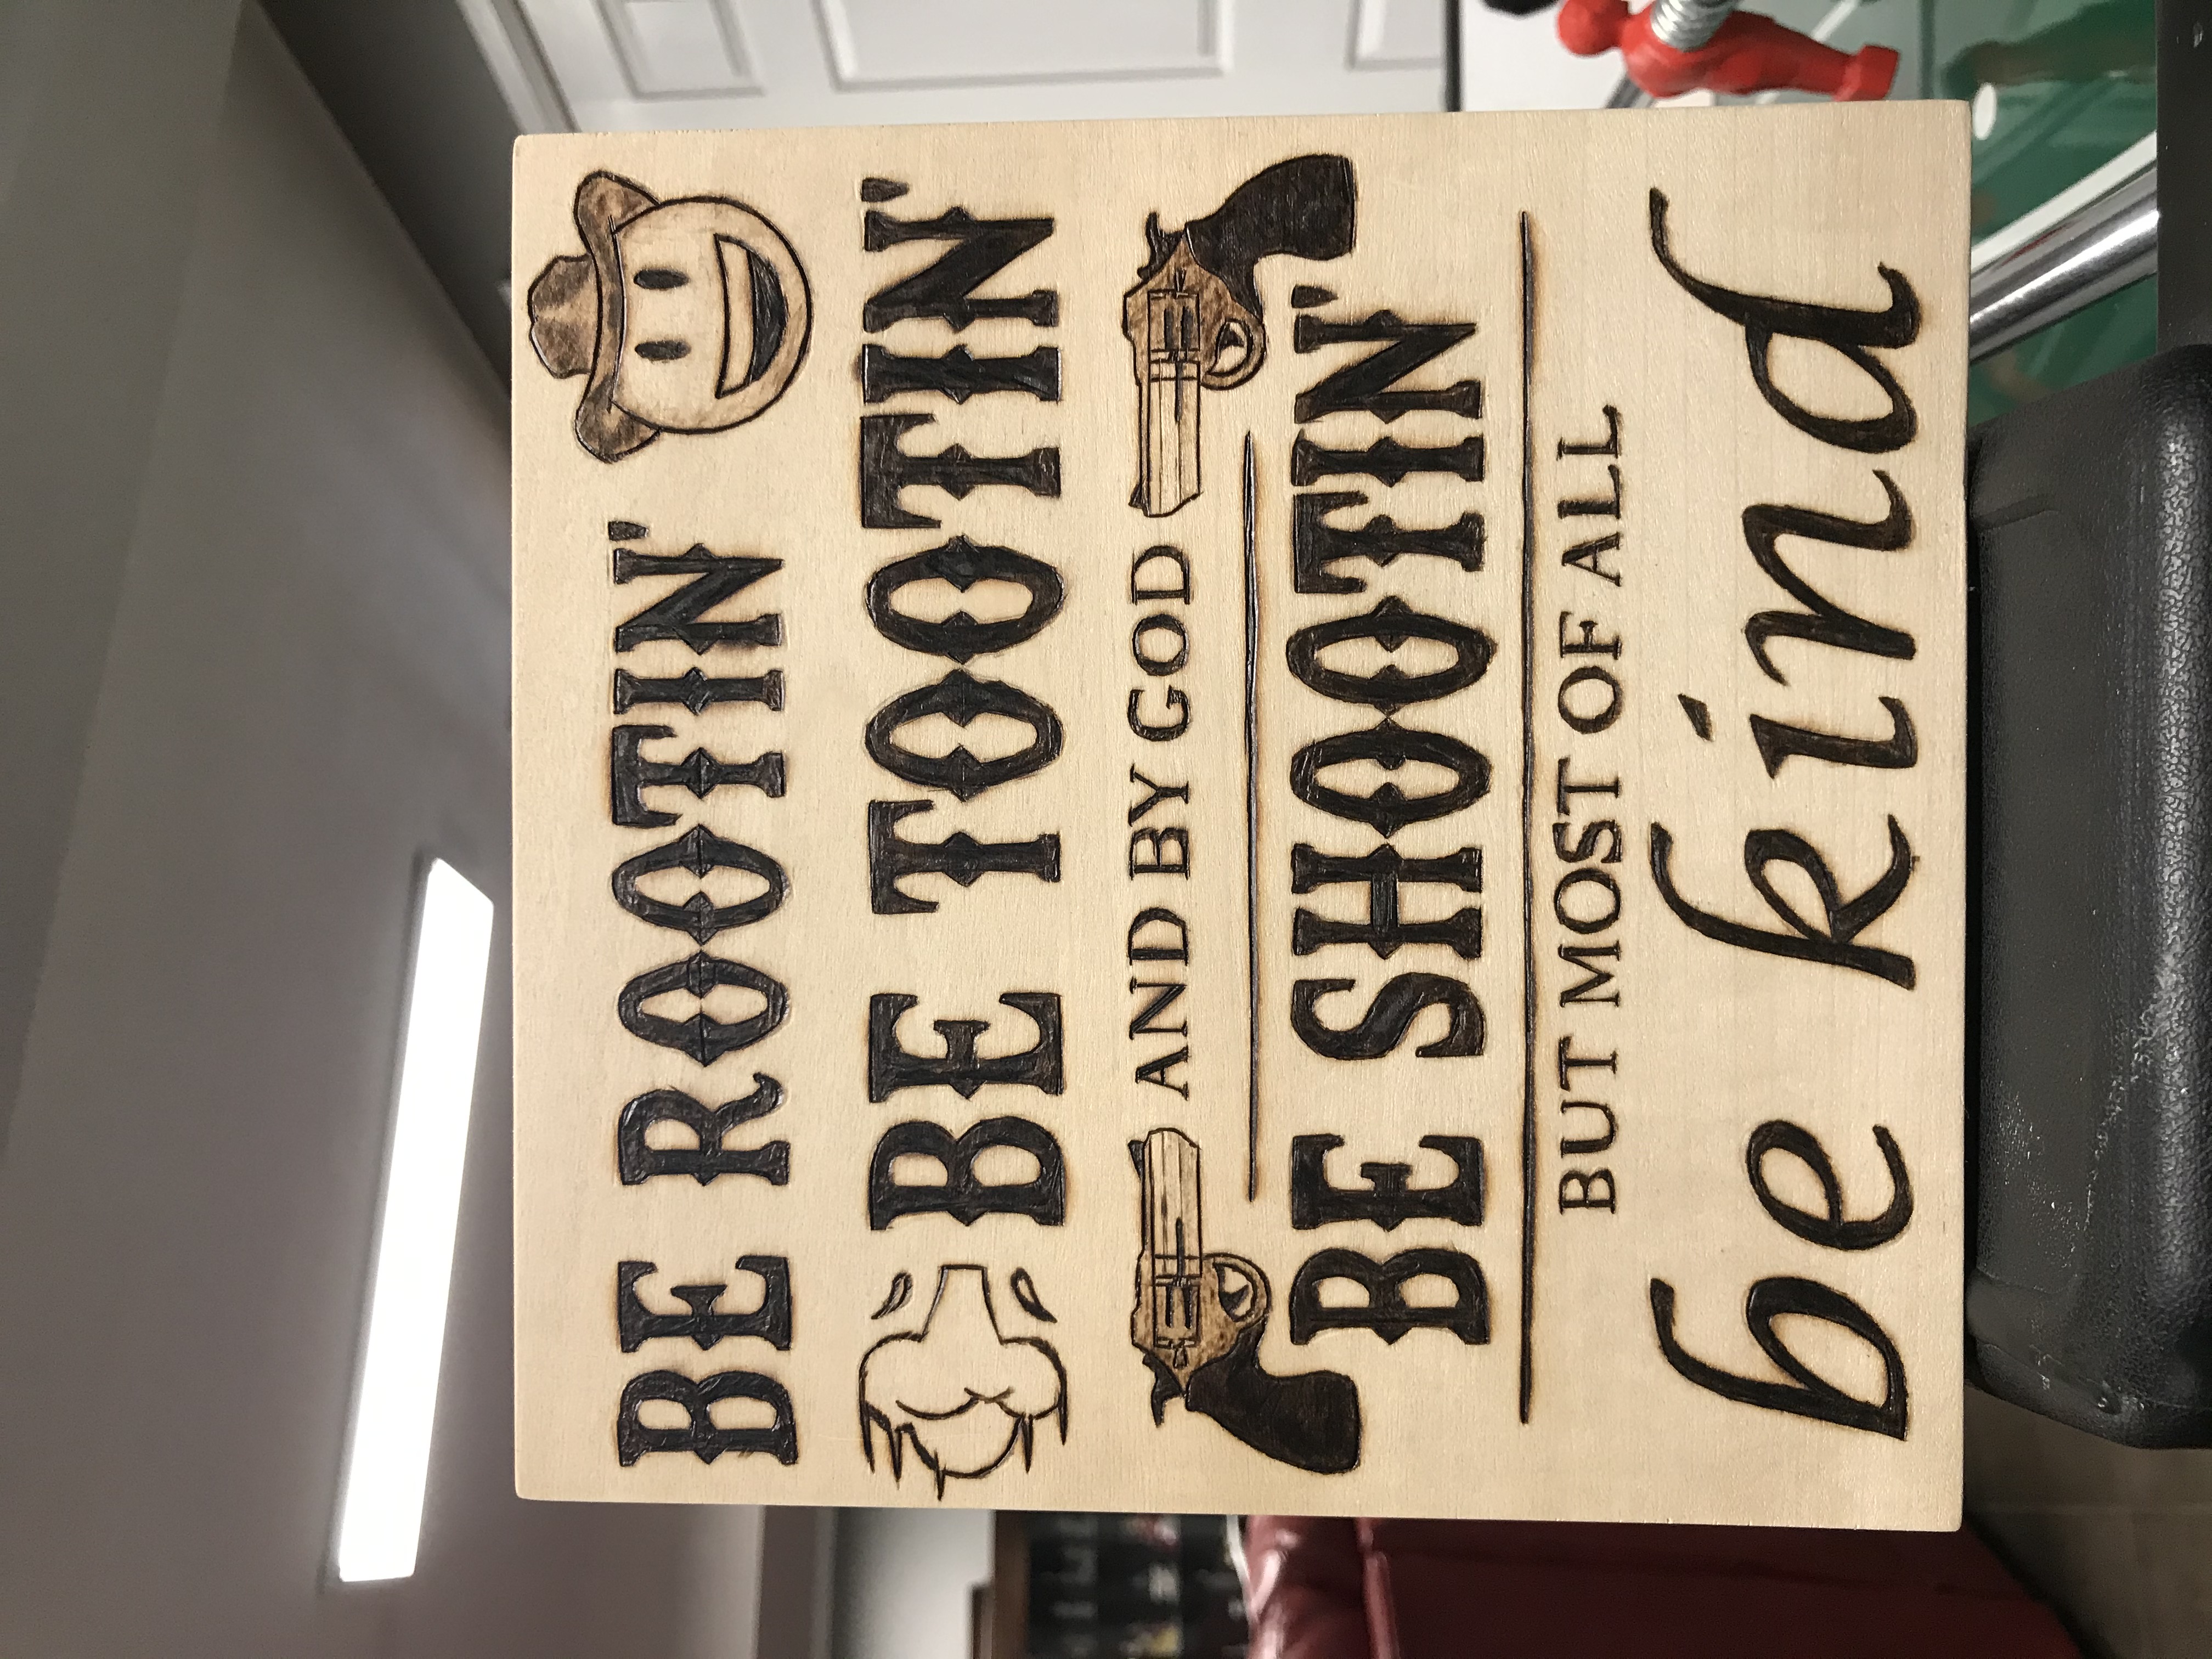 BE ROOTIN'
BE TOOTIN'
AND BY GOD
BE SHOOTIN'
BUT MOST OF ALL
be kind